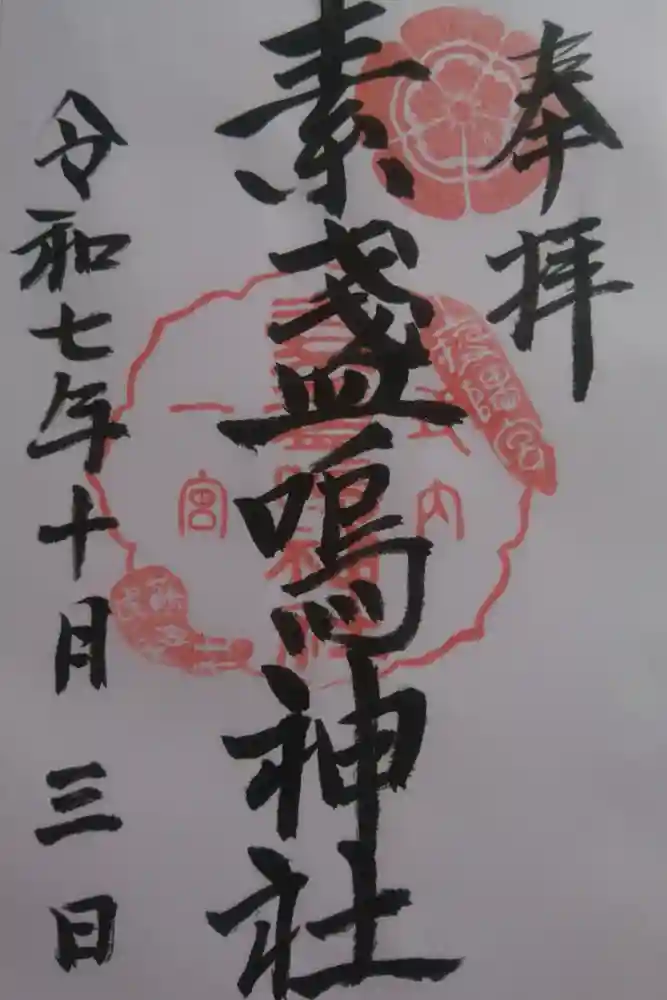 奉拝
素盞嗚神社
武内
一宮
令和七年十月三日